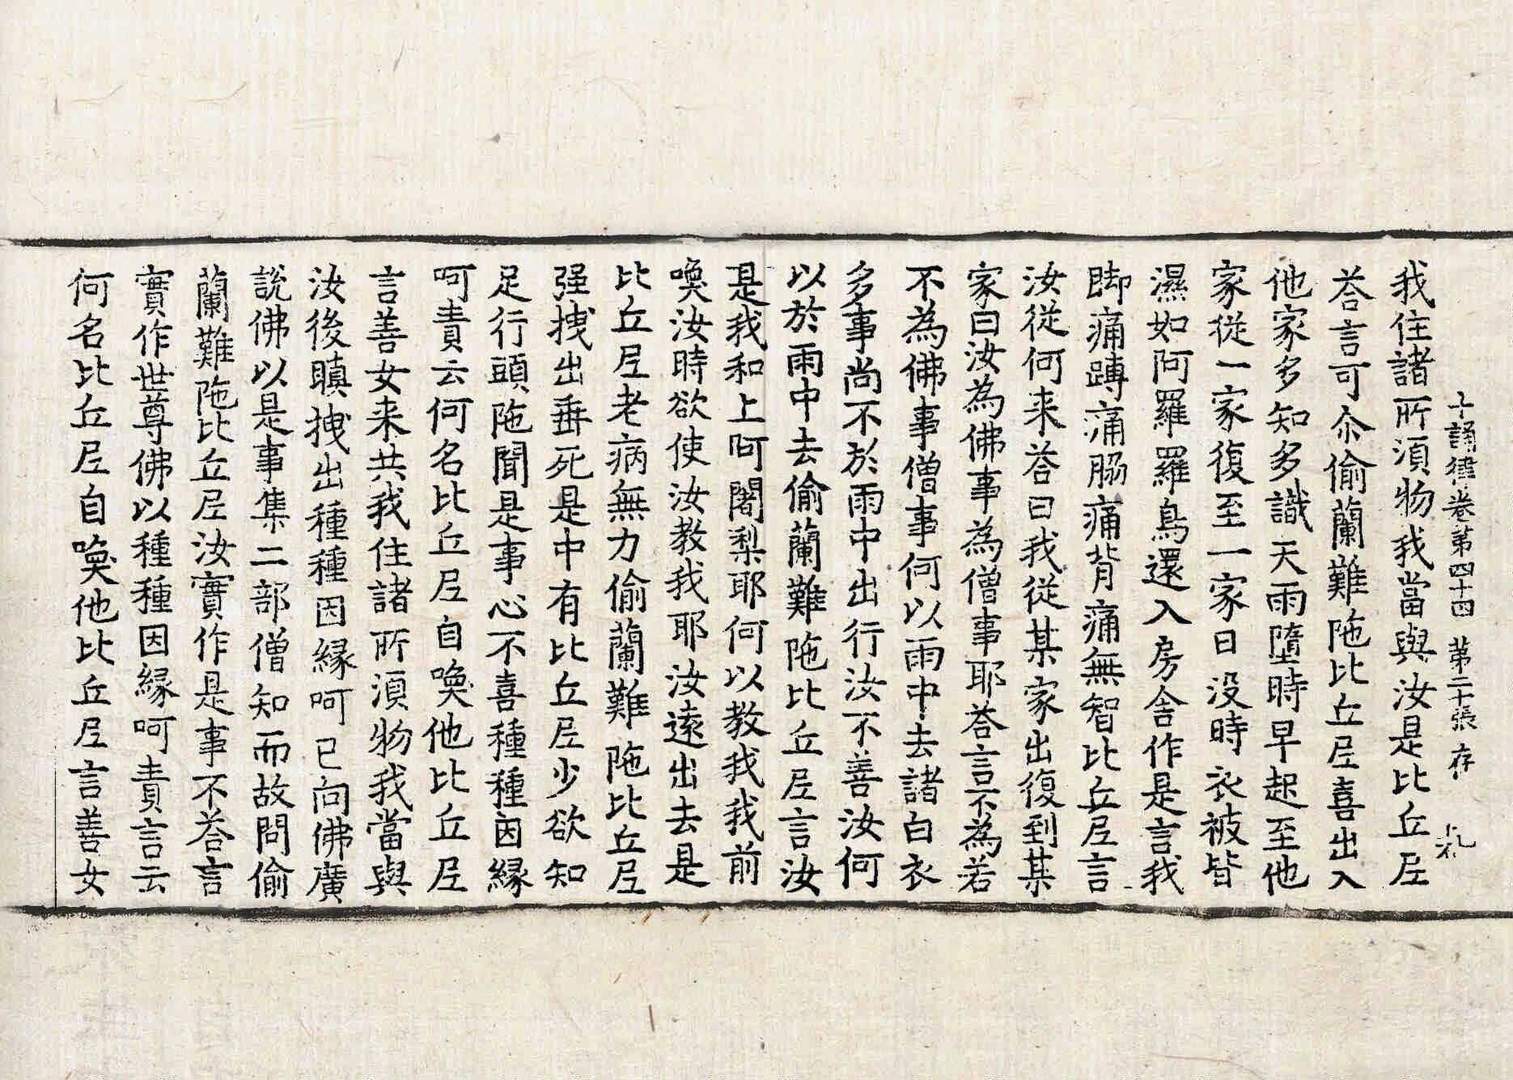 十誦律卷第四十四 第二十張 存
我住諸所須物我當與汝是比丘尼
荅言可尒偷蘭難陁比丘尼喜出入
他家多知多識天雨墮時早起至他
家從一家復至一家日没時衣被皆
濕如阿羅羅鳥還入房舍作是言我
脚痛蹲痛脇痛背痛無智比丘尼言
汝從何来荅曰我從某家出復到某
家曰汝為佛事為僧事耶荅言不為若
不為佛事僧事何以雨中去諸白衣
多事尚不於雨中出行汝不善汝何
以於雨中去偷蘭難陁比丘尼言汝
是我和上阿闍梨耶何以教我我前
喚汝時欲使汝教我耶汝遠出去是
比丘尼老病無力偷蘭難陁比丘尼
强拽出垂死是中有比丘尼少欲知
足行頭陁聞是事心不喜種種因縁
呵責云何名比丘尼自喚他比丘尼
言善女来共我住諸所須物我當與
汝後瞋拽出種種因縁呵已向佛廣
說佛以是事集二部僧知而故問偷
蘭難陁比丘尼汝實作是事不荅言
實作世尊佛以種種因縁呵責言云
何名比丘尼自喚他比丘尼言善女